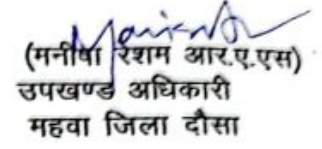 (मनीषा रेशम आर.ए.एस)
उपखण्ड अधिकारी
महवा जिला दौसा